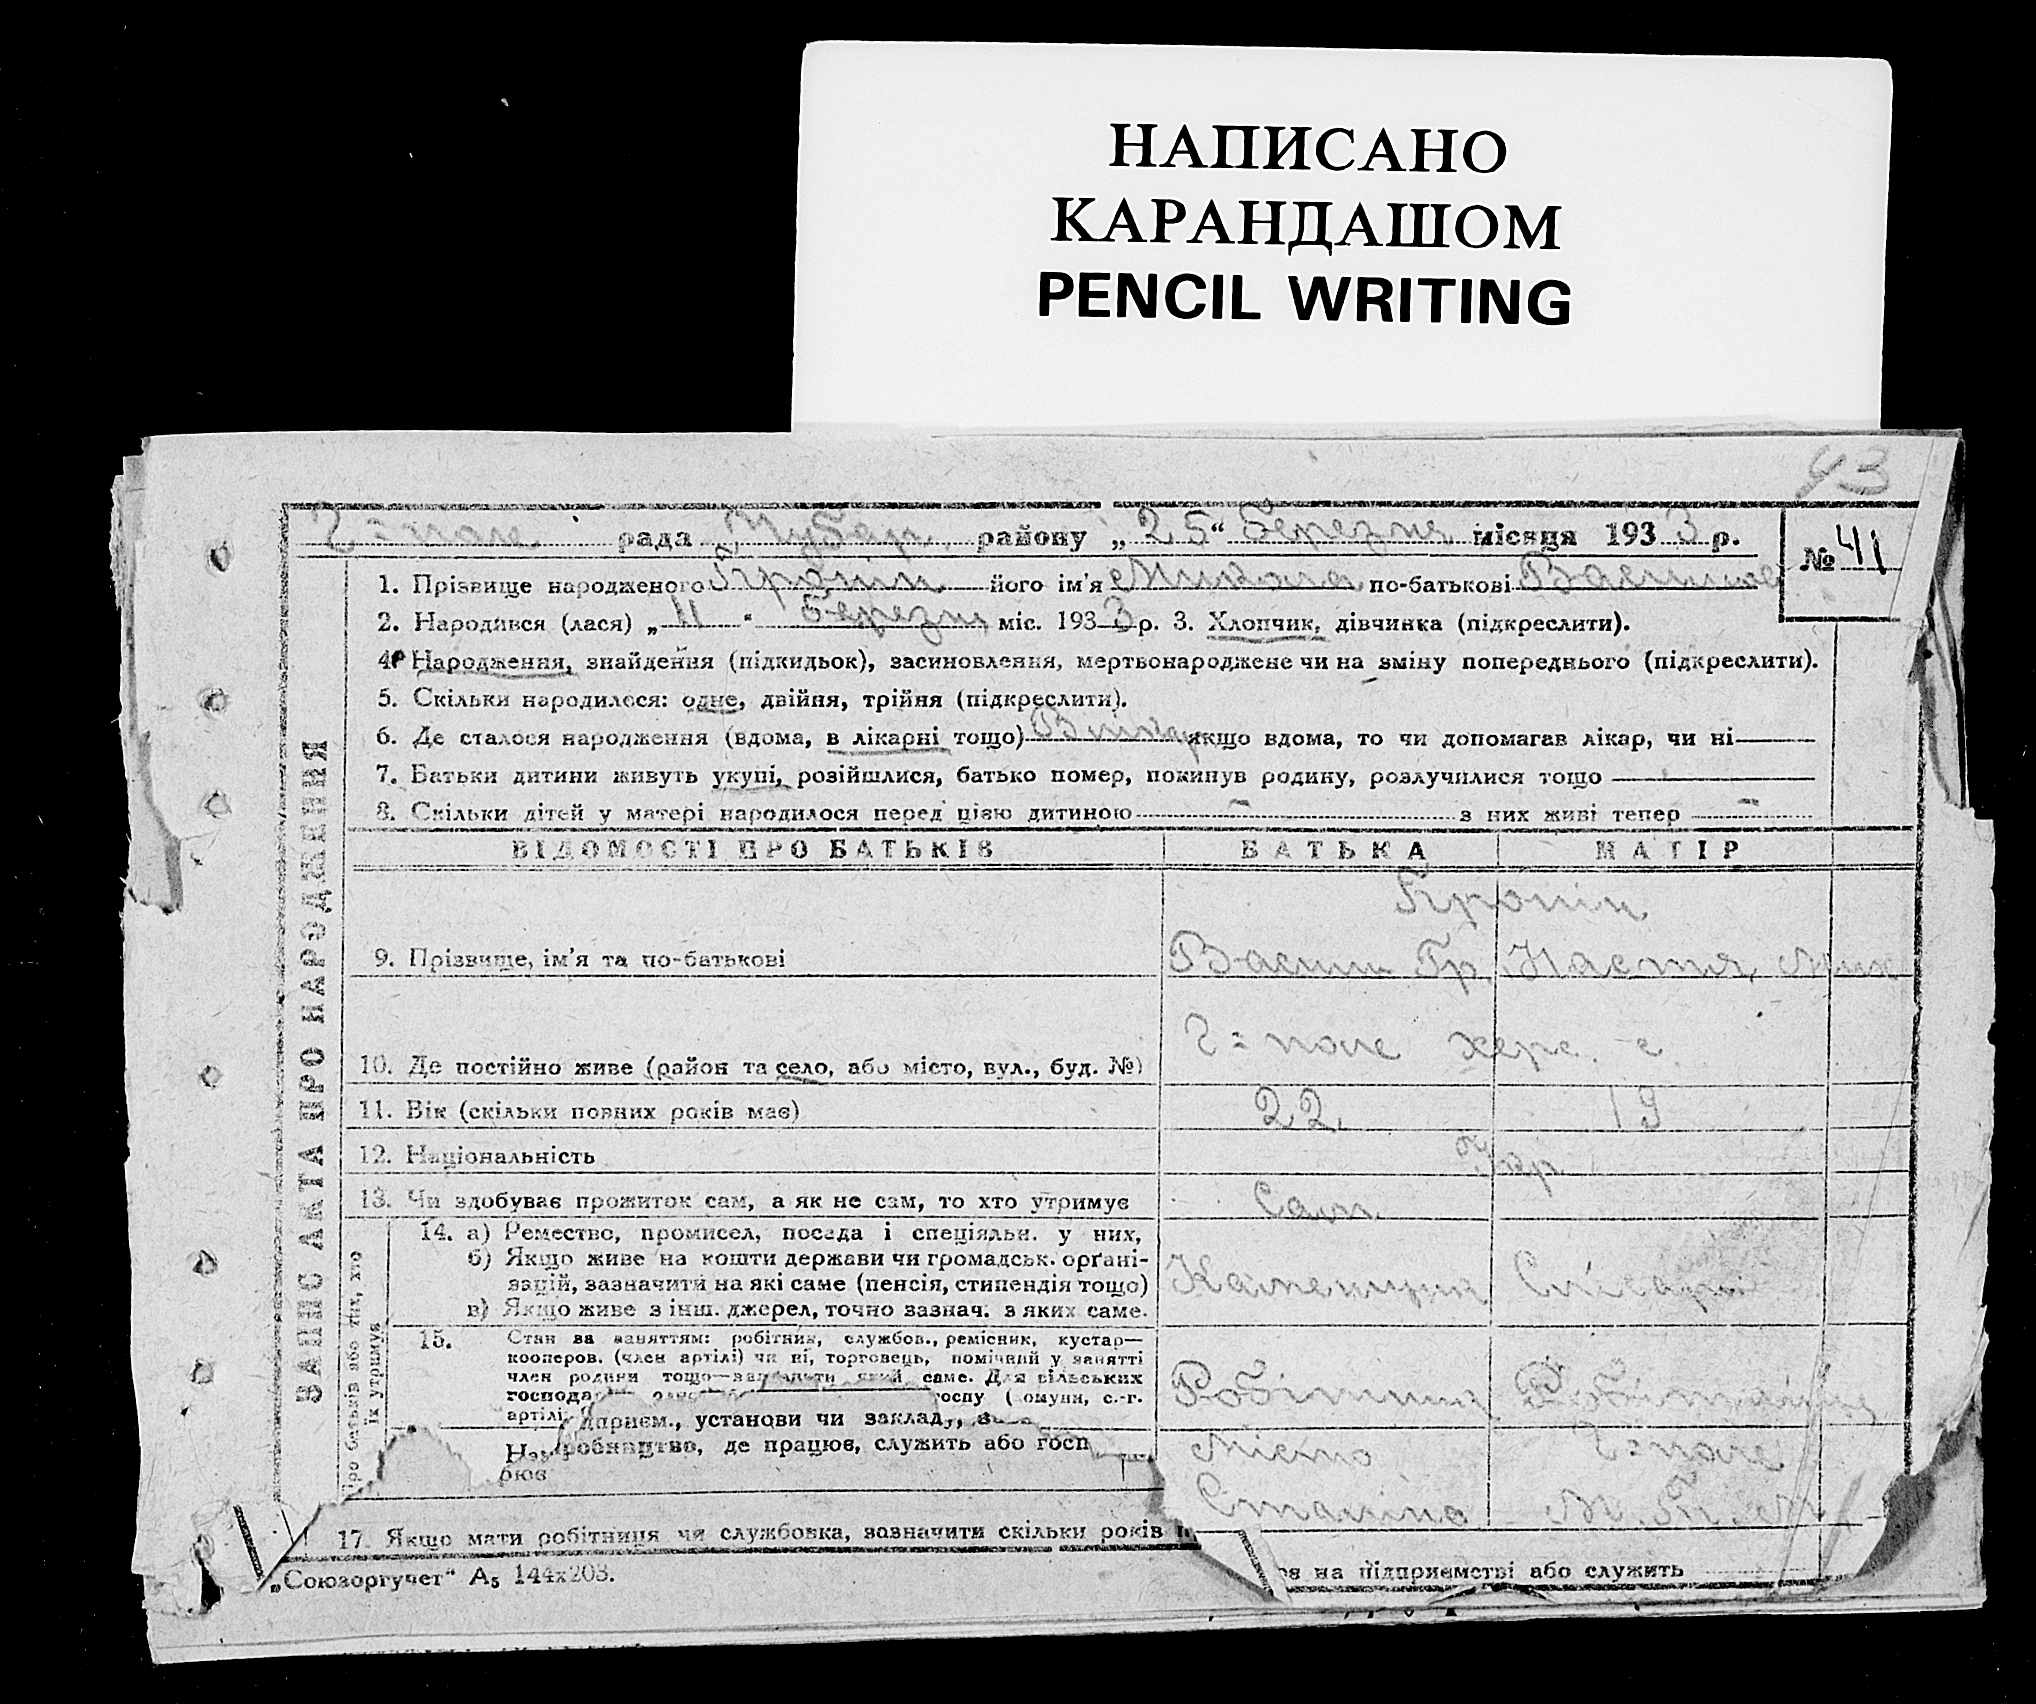 НАПИСАНО
КАРАНДАШОМ
PENCIL WRITING
43
Г=поле рада Чубар. району „25“ березня місяця 1933 р. № 41
1. Прізвище народженого його ім'я Микола по-батькові
2. Народився (лася) „11“ березня міс. 1933 р. 3. Хлопчик, дівчинка (підкреслити).
4. Народження, знайдення (підкидьок), засиновлення, мертвонароджене чи на зміну попереднього (підкреслити).
5. Скільки народилося: одне, двійня, трійня (підкреслити).
6. Де сталося народження (вдома, в лікарні тощо) якщо вдома, то чи допомагав лікар, чи ні
7. Батьки дитини живуть укупі, розійшлися, батько помер, покинув родину, розлучилися тощо
8. Скільки дітей у матері народилося перед цією дитиною — з них живі тепер —
ЗАПИС АКТА ПРО НАРОДЖЕННЯ
ВІДОМОСТІ ПРО БАТЬКІВ БАТЬКА МАТІР
9. Прізвище, ім'я та по-батькові Васили Гр. Настя, Мих
10. Де постійно живе (район та село, або місто, вул., буд. №) Г=поле херс. с.
11. Вік (скільки повних років має) 22 19
12. Національність Укр
13. Чи здобуває прожиток сам, а як не сам, то хто утримує Сам
про батьків або тих, хто їх утримує
14. а) Ремество, промисел, посада і спеціяльн. у них,
б) Якщо живе на кошти держави чи громадськ. орґані-
зацій, зазначити на які саме (пенсія, стипендія тощо)
в) Якщо живе з інш. джерел, точно зазнач. з яких саме.
15. Стан за заняттям: робітник, службов., ремісник, кустар—
кооперов. (член артілі) чи ні, торговець, помічний у занятті
член родини тощо—зазначити який саме. Для сільських
господа госпу (комуни, с.-г.
артілі Робітник Робітниця
дприєм., установи чи закладу,
робництво, де працює, служить або госп
Місто Г=поле
Сталіно
17. Якщо мати робітниця чи службовка, зазначити скільки років п
на підприємстві або служить
„Союзоргучет“ А5 144х203.